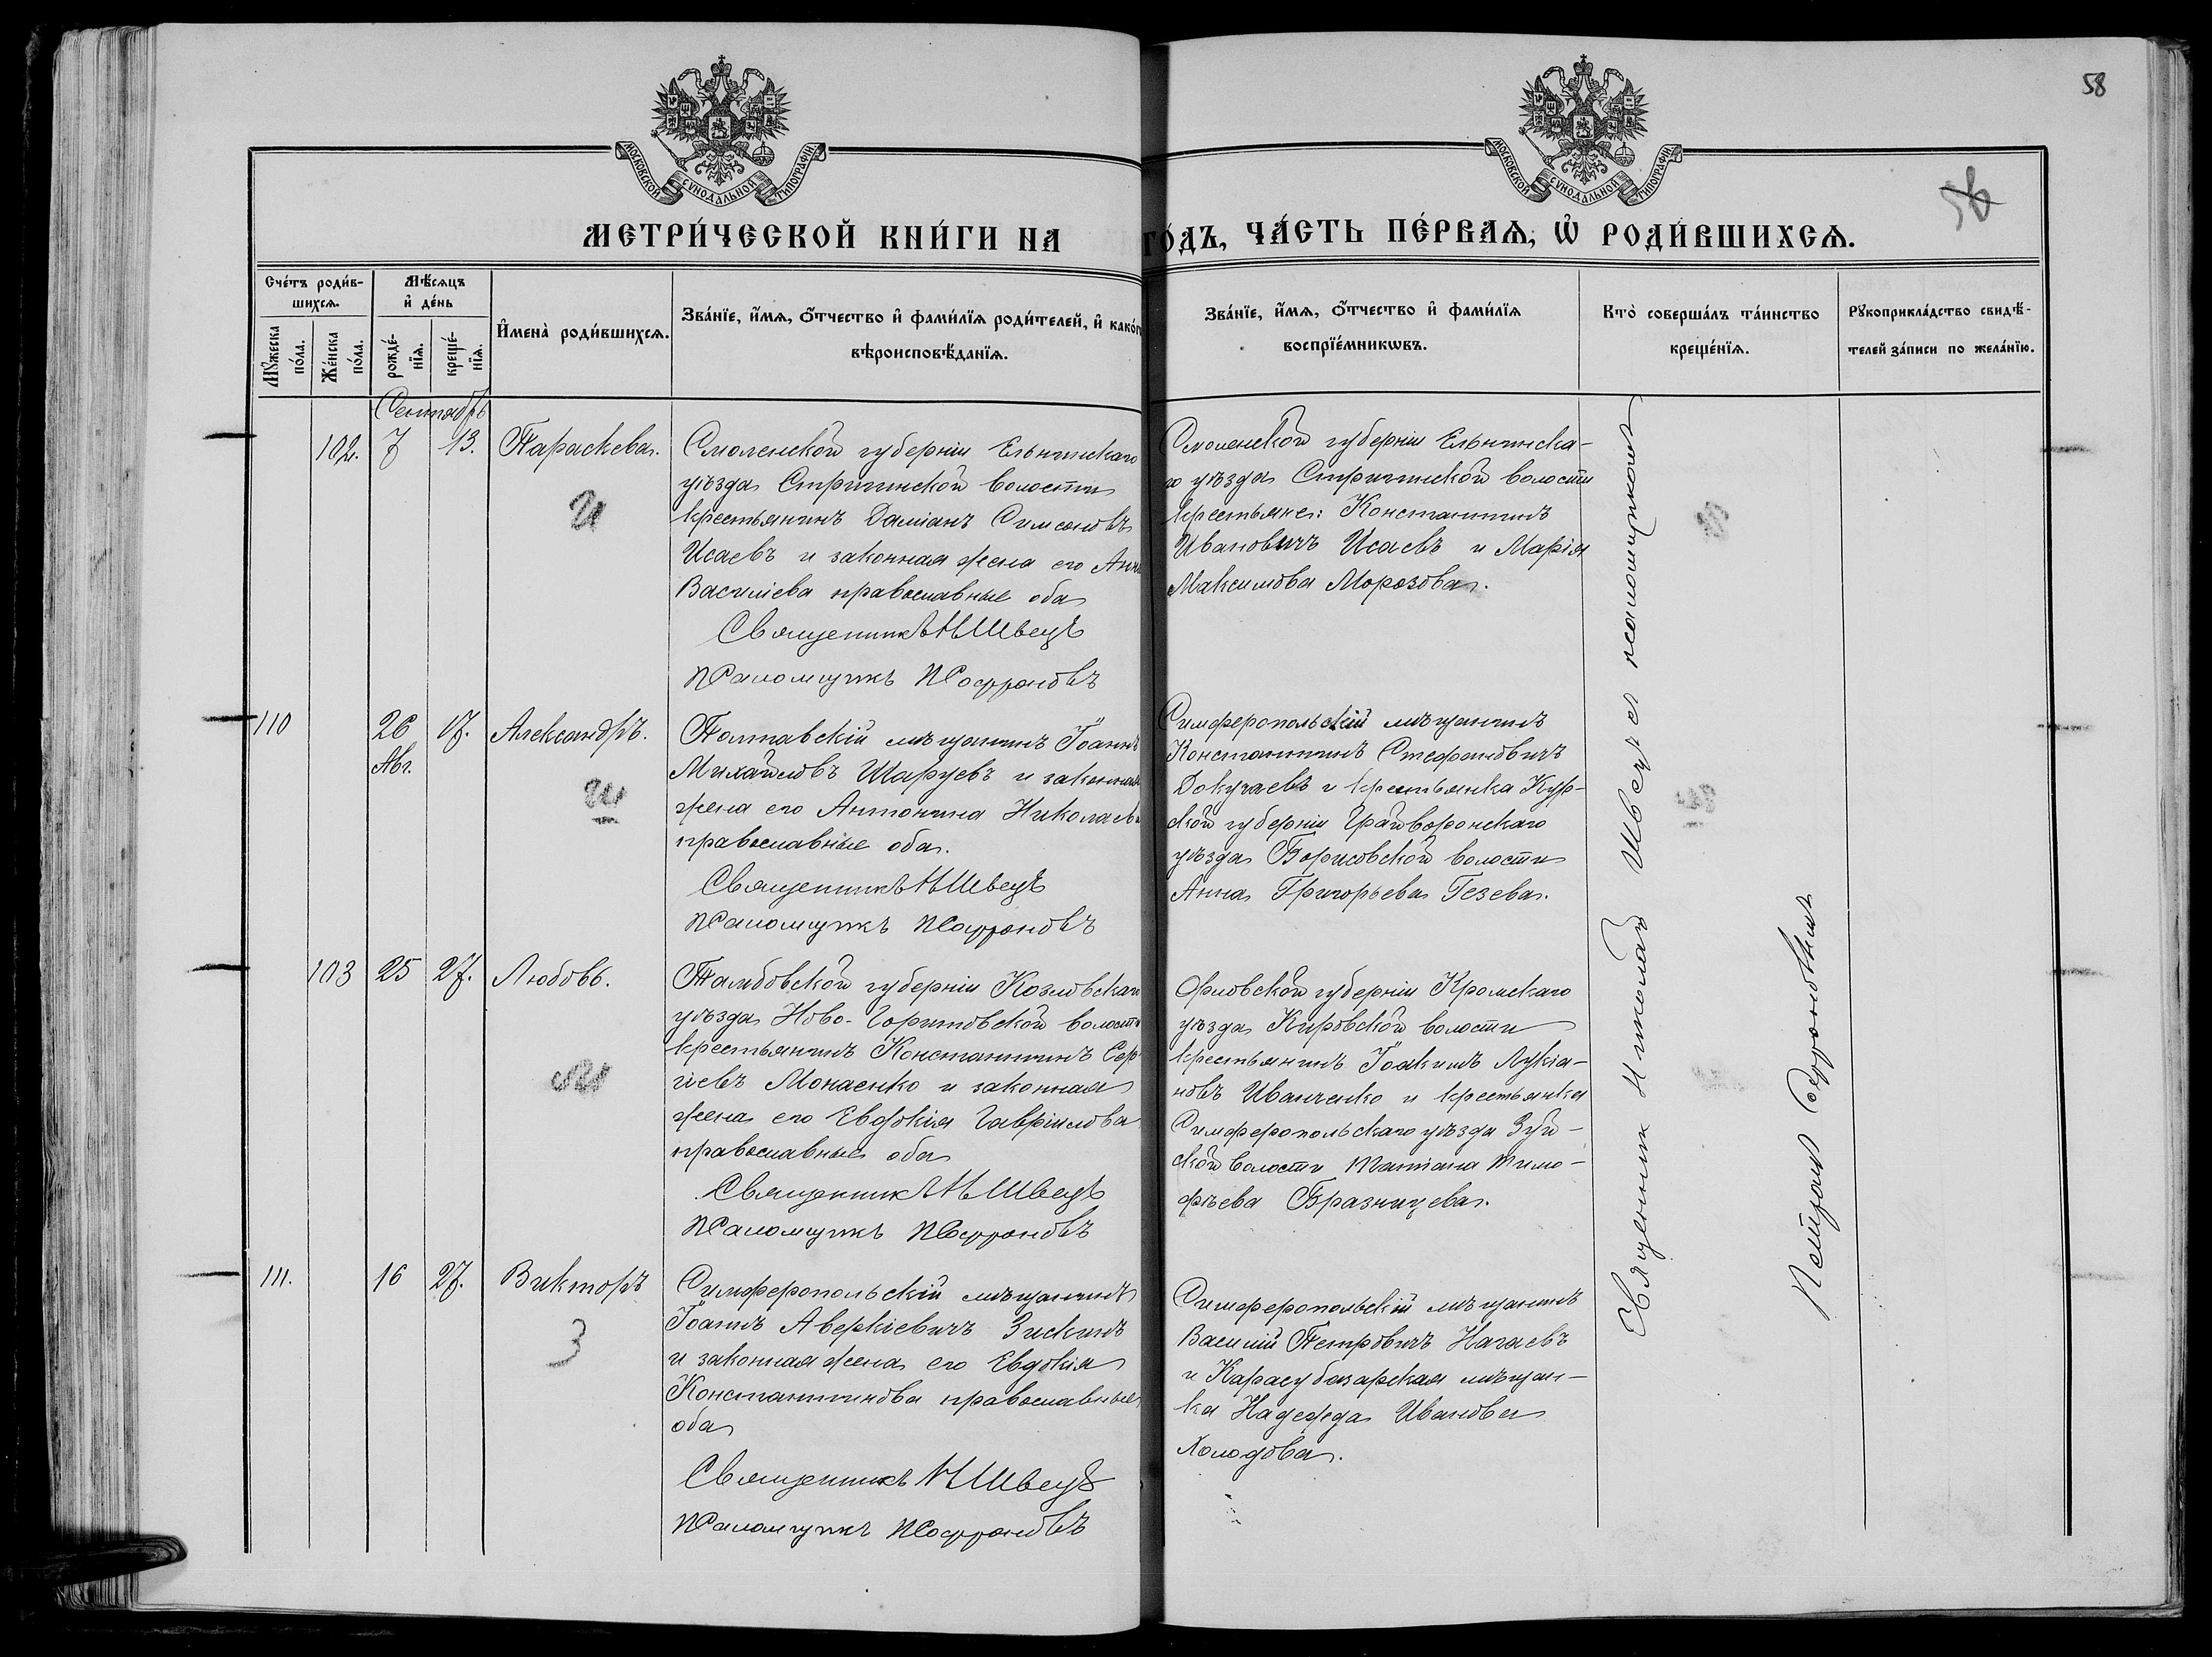 58
МОСКОВСКОЙ СѴНОДАЛЬНОЙ ТИПОГРАФІИ
МОСКОВСКОЙ СѴНОДАЛЬНОЙ ТИПОГРАФІИ
МЕТРИ́ЧЕСКОЙ КНИ́ГИ НА
ГО́ДЪ, ЧА́СТЬ ПЕ́РВАѦ, Ѡ҆ РОДИ́ВШИХСѦ.
Сче́тъ роди́в-
шихсѧ.
Мѣ́сѧцъ
и҆ де́нь
Мꙋ́жеска
по́ла.
Же́нска
по́ла.
рожде́-
нїѧ.
креще́-
нїѧ.
И҆мена̀ роди́вшихсѧ.
Зва́нїе, и҆́мѧ, ѻ҆́тчество и҆ фами́лїѧ роди́телей, и҆ како́г
вѣроисповѣ́данїѧ.
Зва́нїе, и҆́мѧ, ѻ҆́тчество и҆ фами́лїѧ
воспрїе́мникѡвъ.
Кто̀ соверша́лъ та́инство
креще́нїѧ.
Рꙋкоприкла́дство свидѣ́-
телей за́писи по жела́нїю.
Сентябрь
102. 7 13. Параскева.
Смоленской губерніи Ельнинскаго
уѣзда Стригинской волости
крестьянинъ Даміанъ Симеоновъ
Исаевъ и законная жена его Анна
Василіева православные оба
Священникъ Н Швецъ
Псаломщикъ П Софроновъ
Смоленской губерніи Ельнинска-
го уѣзда Стригинской волости
крестьяне: Константинъ
Ивановичъ Исаевъ и Марія
Максимова Морозова.
110 26 17. Александръ.
Авг.
Полтавскій мѣщанинъ Іоаннъ
Михайловъ Шаруевъ и законная
жена его Антонина Николаева
православные оба.
Священникъ Н Швецъ
Псаломщикъ П Софроновъ
Симферопольскій мѣщанинъ
Константинъ Стефановичъ
Докучаевъ и крестьянка Кур-
ской губерніи Грайворонскаго
уѣзда Борисовской волости
Анна Григорьева Гезева.
103 25 27. Любовь.
Тамбовской губерніи Козловскаго
уѣзда Ново-Гаритовской волости
крестьянинъ Константинъ Сер-
гіевъ Монаенко и законная
жена его Евдокія Гавріилова
православные оба
Священникъ Н Швецъ
Псаломщикъ П Софроновъ
Орловской губерніи Кромскаго
уѣзда Кировской волости
крестьянинъ Іоакимъ Лукіа-
новъ Иванченко и крестьянка
Симферопольскаго уѣзда Зуй-
ской волости Татіана Тимо-
фѣева Бразнацева.
111. 16 27. Викторъ
З
Симферопольскій мѣщанинъ
Іоаннъ Аверкіевичъ Зискинъ
и законная жена его Евдокія
Константинова православные
оба
Священникъ Н Швецъ
Псаломщикъ П Софроновъ
Симферопольскій мѣщанинъ
Василій Петровичъ Нагаевъ
и Карасубазарская мѣщан-
ка Надежда Иванова
Холодова.
Священник Николай Швец с псаломщиком
Петром Софроновымъ